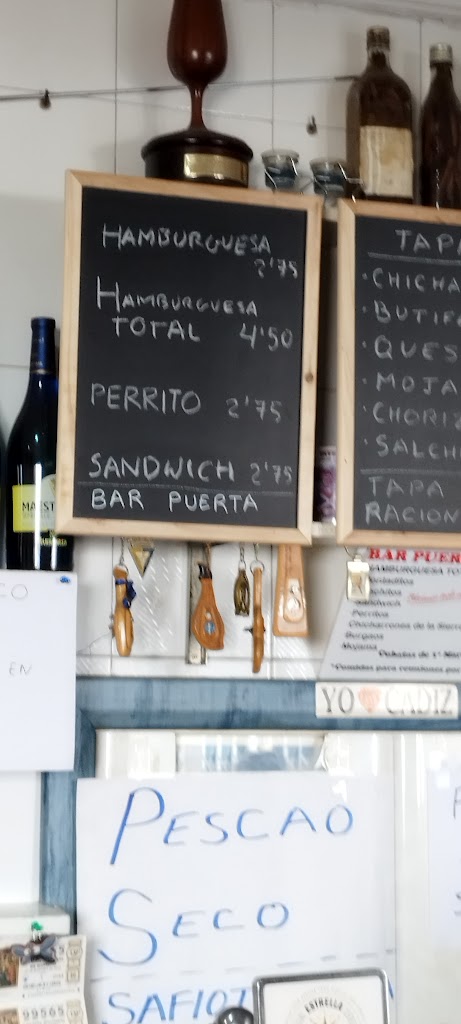 HAMBURGUESA
2'75
HAMBURGUESA
TOTAL 4'50
PERRITO 2'75
SANDWICH 2'75
BAR PUERTA
TAP
· CHICHA
· BUTIF
· QUES
· MOJA
· CHORIZ
· SALCH
TAPA
RACION
BAR PUER
HAMBURGUESA TO
Perritos
Chicharrones de la Sierra
Mojama
CO
EN
YO CADIZ
PESCAO
SECO
SAFIO
ESTRELLA
99565